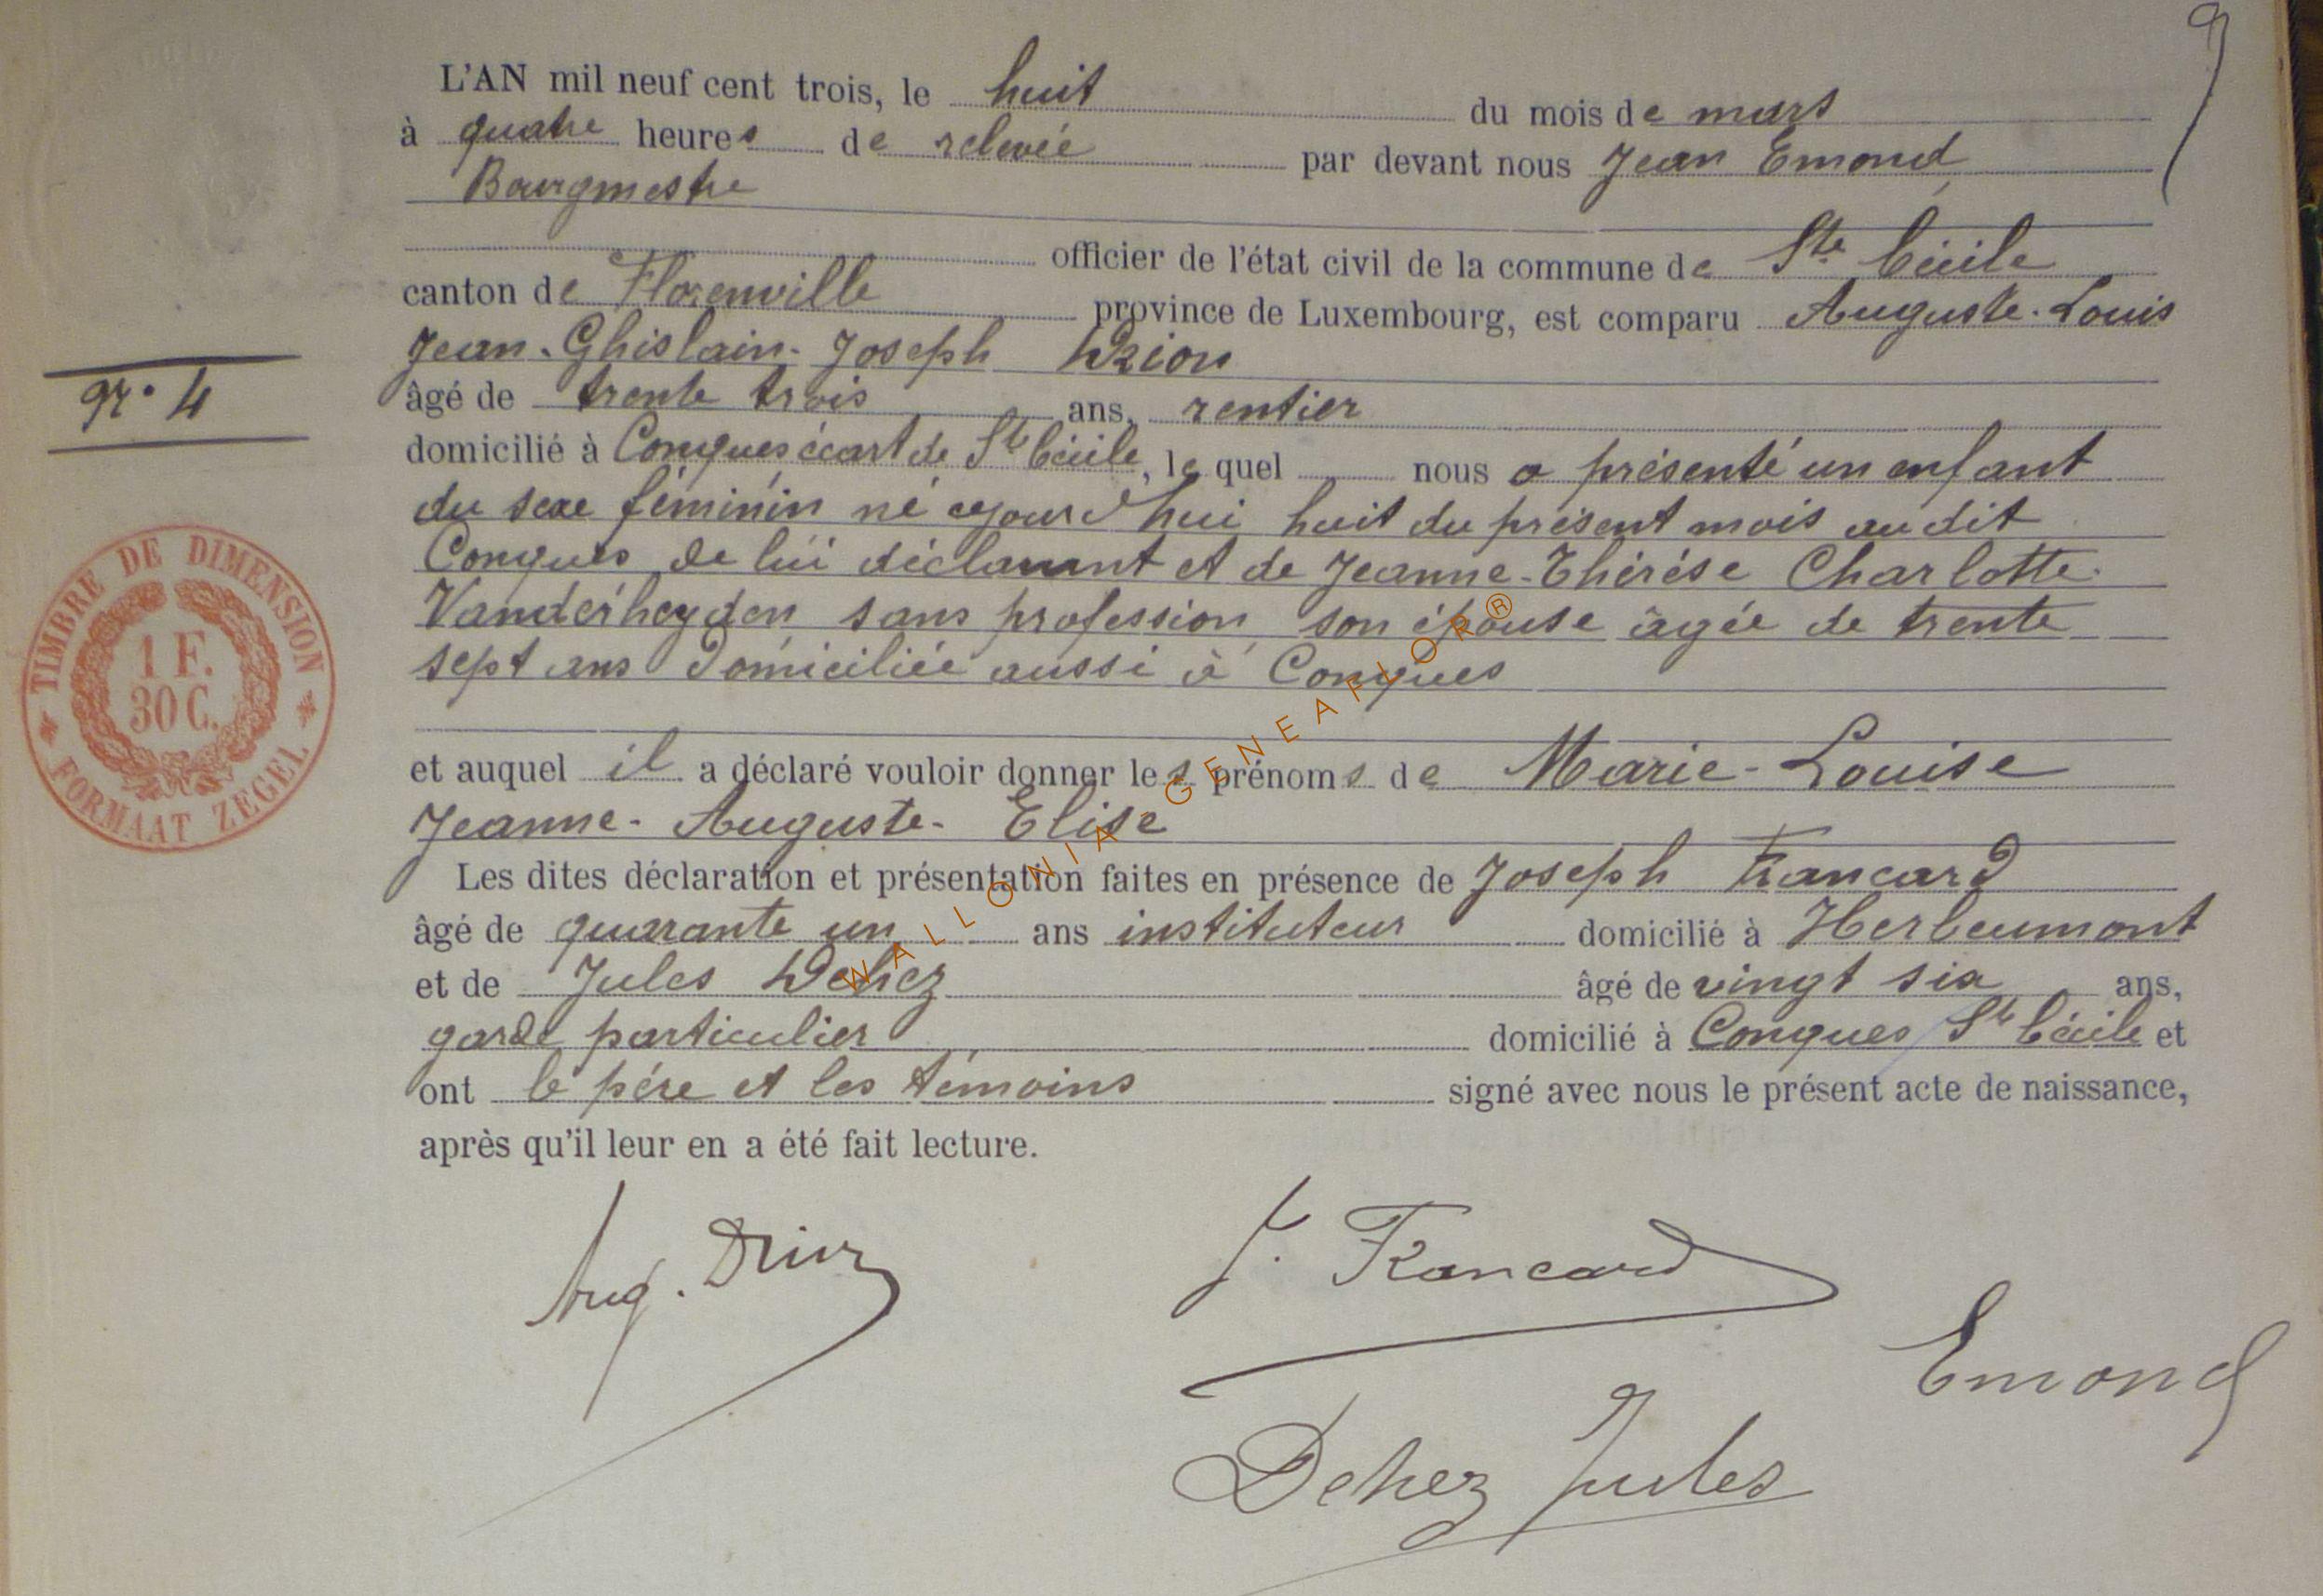 9
L'AN mil neuf cent trois, le huit du mois de mars
à quatre heures de relevée par devant nous Jean Emond,
Bourgmestre
officier de l'état civil de la commune de Ste Cécile
canton de Florenville province de Luxembourg, est comparu Auguste-Louis
Jean-Ghislain-Joseph Drion
âgé de trente trois ans, rentier
domicilié à Conques écart de Ste Cécile, le quel nous a présenté un enfant
du sexe féminin né cejourd'hui huit du présent mois au dit
Conques de lui déclarant et de Jeanne-Thérèse Charlotte
Vanderheyden sans profession son épouse âgée de trente
sept ans domiciliée aussi à Conques
et auquel il a déclaré vouloir donner les prénoms de Marie-Louise
Jeanne-Auguste-Elise
Les dites déclaration et présentation faites en présence de Joseph Francard
âgé de quarante un ans instituteur domicilié à Herbeumont
et de Jules Dehez âgé de vingt six ans,
garde particulier domicilié à Conques Ste Cécile et
ont le père et les témoins signé avec nous le présent acte de naissance,
après qu'il leur en a été fait lecture.
Nº 4
TIMBRE DE DIMENSION
1 F.
30 C.
FORMAAT ZEGEL
WALLONIA-GENEAFLOR®
Aug. Drion
J. Francard
Emond
Dehez Jules